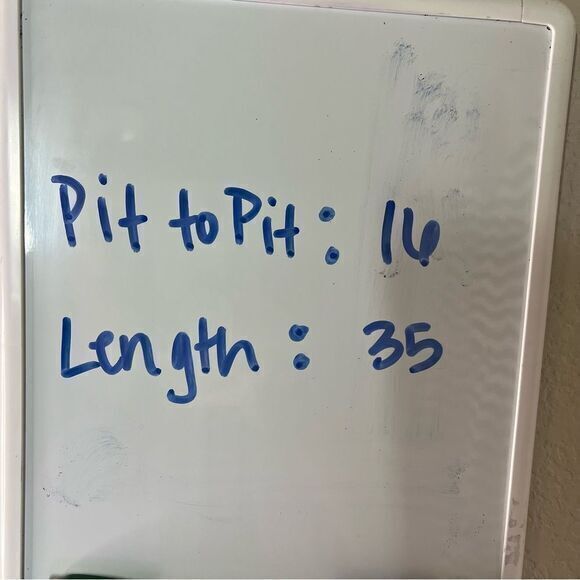 Pit to Pit: 16
Length: 35